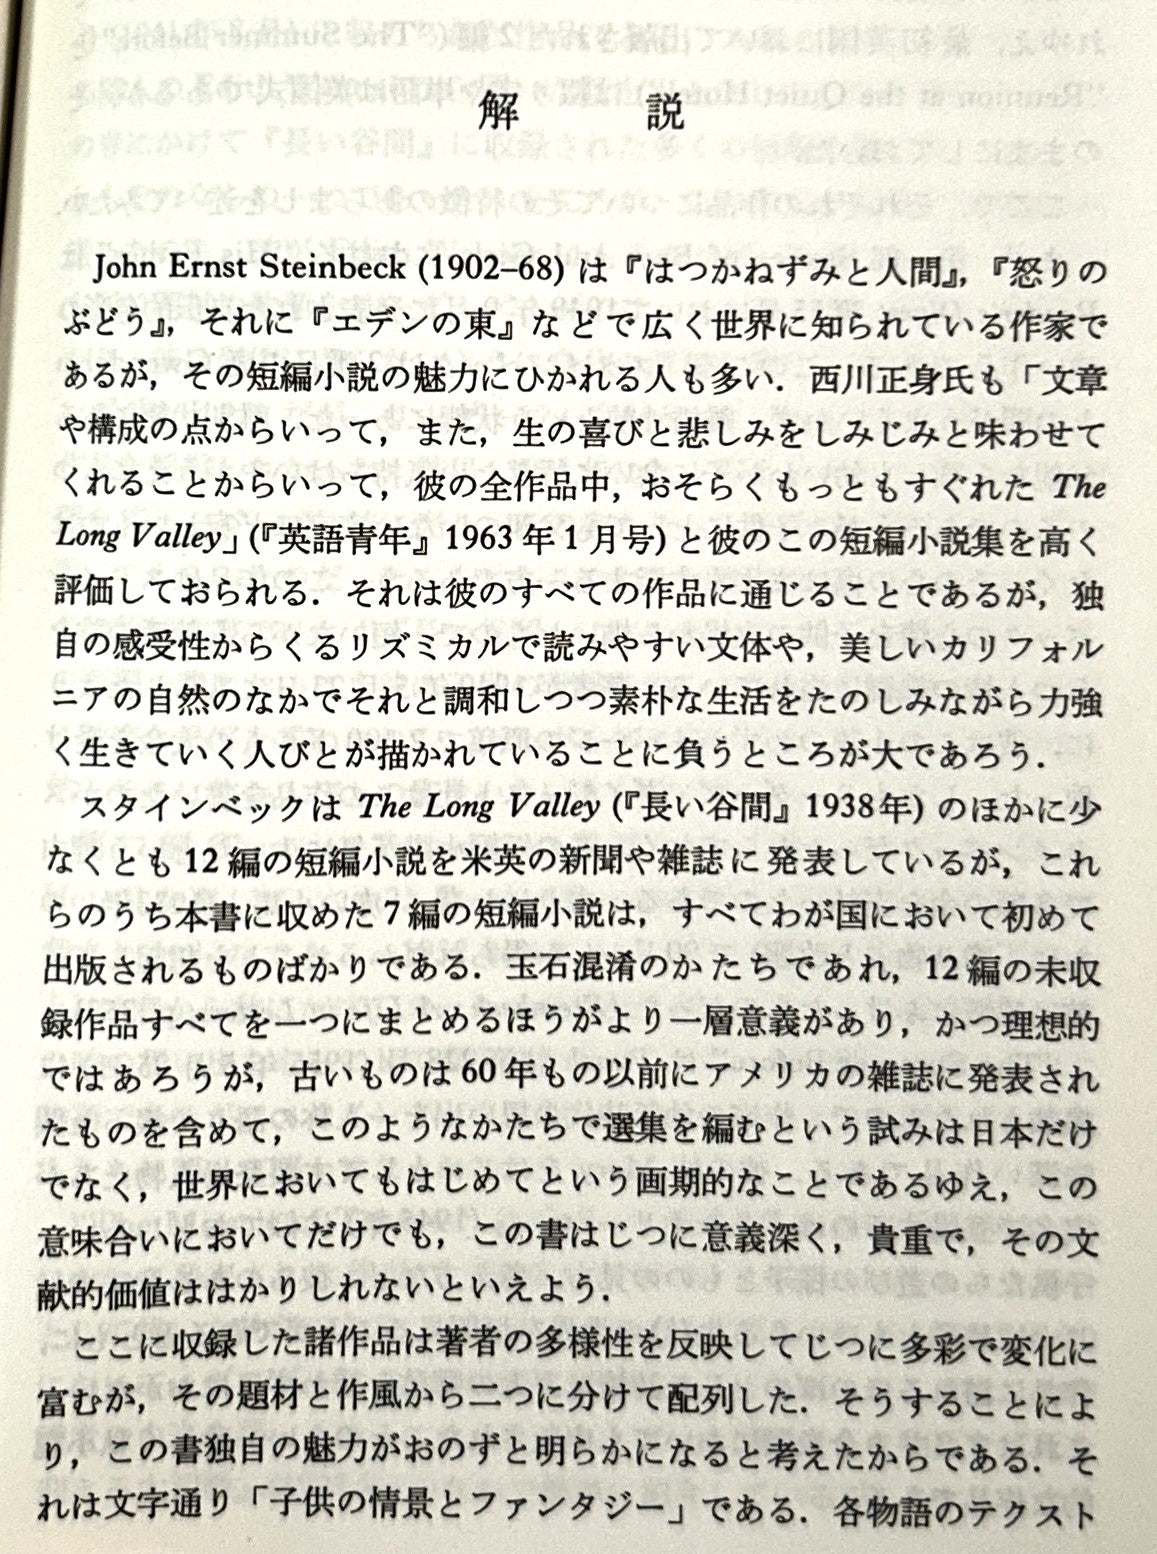 解 説
John Ernst Steinbeck (1902–68) は『はつかねずみと人間』,『怒りの
ぶどう』, それに『エデンの東』などで広く世界に知られている作家で
あるが, その短編小説の魅力にひかれる人も多い. 西川正身氏も「文章
や構成の点からいって, また, 生の喜びと悲しみをしみじみと味わせて
くれることからいって, 彼の全作品中, おそらくもっともすぐれた The
Long Valley」(『英語青年』1963年1月号) と彼のこの短編小説集を高く
評価しておられる. それは彼のすべての作品に通じることであるが, 独
自の感受性からくるリズミカルで読みやすい文体や, 美しいカリフォル
ニアの自然のなかでそれと調和しつつ素朴な生活をたのしみながら力強
く生きていく人びとが描かれていることに負うところが大であろう.
スタインベックは The Long Valley (『長い谷間』1938年) のほかに少
なくとも12編の短編小説を米英の新聞や雑誌に発表しているが, これ
らのうち本書に収めた7編の短編小説は, すべてわが国において初めて
出版されるものばかりである. 玉石混淆のかたちであれ, 12編の未収
録作品すべてを一つにまとめるほうがより一層意義があり, かつ理想的
ではあろうが, 古いものは60年もの以前にアメリカの雑誌に発表され
たものを含めて, このようなかたちで選集を編むという試みは日本だけ
でなく, 世界においてもはじめてという画期的なことであるゆえ, この
意味合いにおいてだけでも, この書はじつに意義深く, 貴重で, その文
献的価値ははかりしれないといえよう.
ここに収録した諸作品は著者の多様性を反映してじつに多彩で変化に
富むが, その題材と作風から二つに分けて配列した. そうすることによ
り, この書独自の魅力がおのずと明らかになると考えたからである. そ
れは文字通り「子供の情景とファンタジー」である. 各物語のテクスト